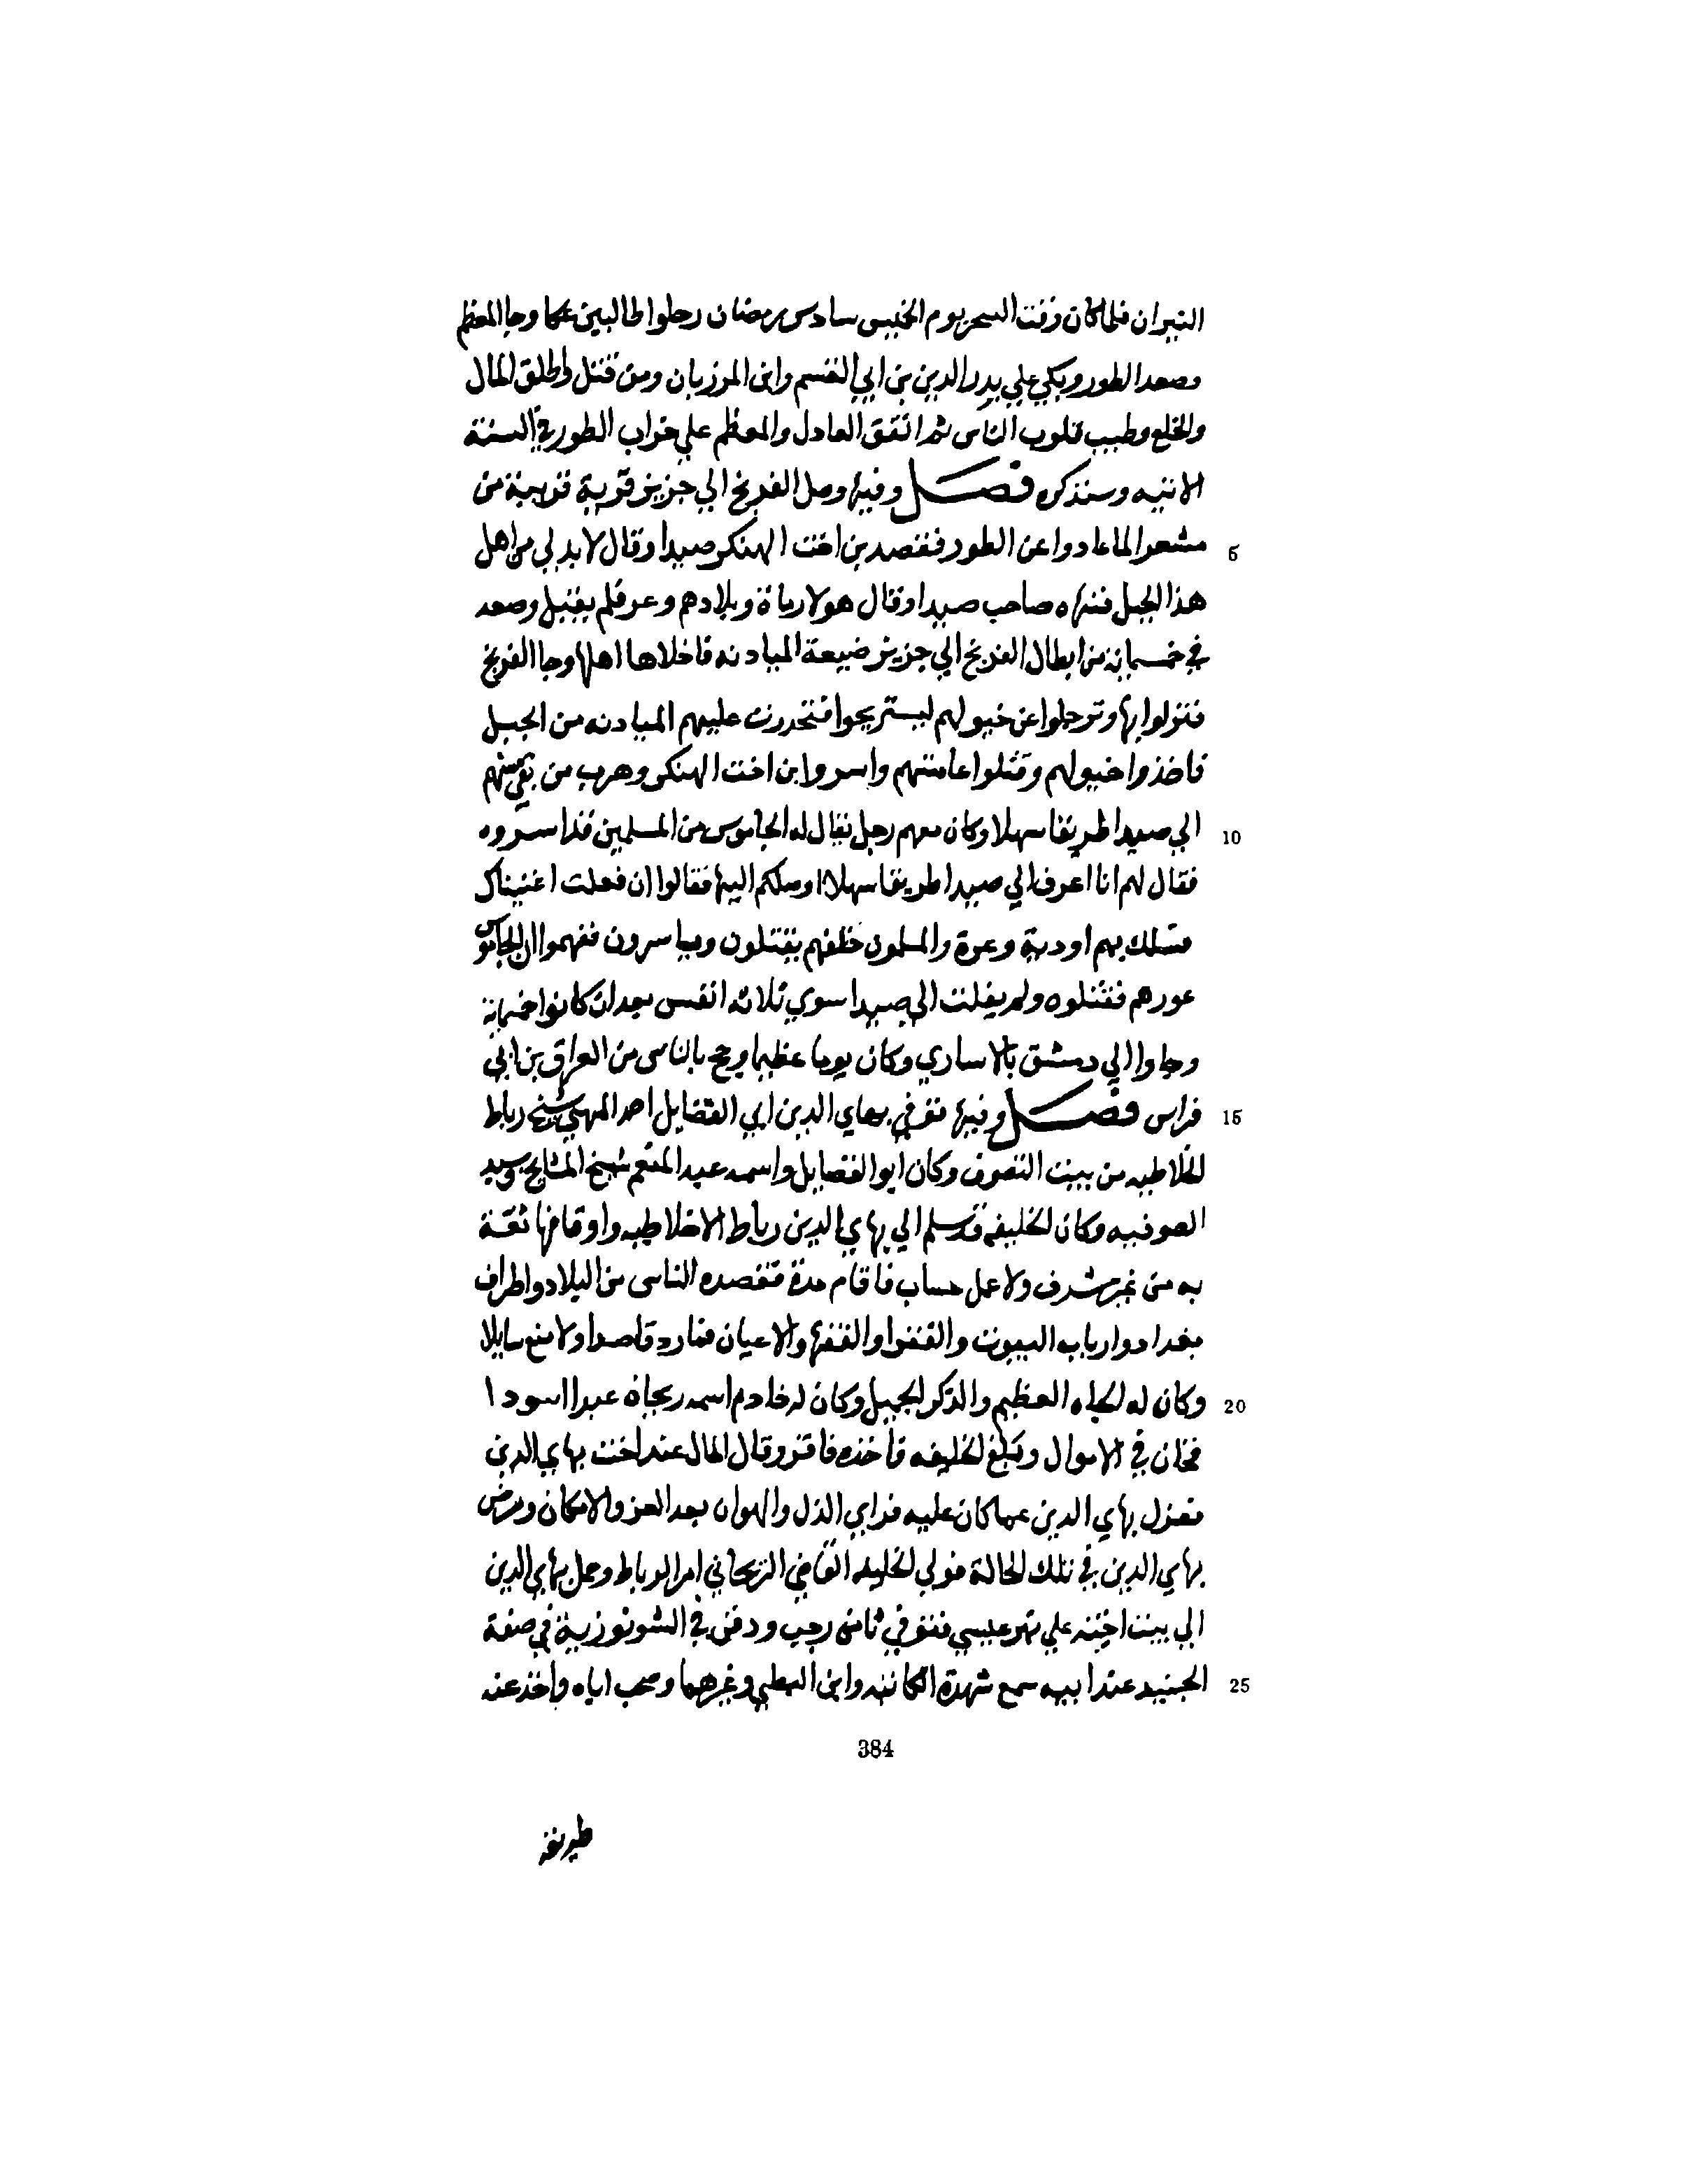 النيران فلما كان وقت السحر يوم الخميس سادس رمضان رحلوا طالبين عكا وجا المعظم
وصعد الطور وبكي علي بدر الدين بن ابي القسم وابن المرزبان ومن قتل واطلق المال
والخلع وطيب قلوب الناس ثم اتفق العادل والمعظم علي خراب الطور في السنة
الاتيه وسنذكره فصل وفيها وصل الفرنج الي جزين قرية قريبة من
5 مشعر الما عادوا عن الطور فقصد بن اخت الهنكر صيدا وقال لا بد لي من اهل
هذا الجبل فنهاه صاحب صيدا وقال هولا رماة وبلادهم وعر فلم يقبل وصعد
في خمسماية من ابطال الفرنج الي جزين ضيعة الميادنه فاخلاها اهلها وجا الفرنج
فنزلوا بها وترجلوا عن خيولهم ليستريحوا فتحدرت عليهم الميادنه من الجبل
فاخذوا خيولهم وقتلوا عامتهم واسروا ابن اخت الهنكر وهرب من بقي منهم
10 الي صيدا طريقا سهلا وكان معهم رجل يقال له الجاموس من المسلمين قد اسروه
فقال لهم انا اعرف الي صيدا طريقا سهلا اوصلكم اليها فقالوا ان فعلت اغنيناك
فسلك بهم اودية وعرة والمسلمون خلفهم يقتلون وياسرون ففهموا ان الجاموس
غورهم فقتلوه ولم يفلت الي صيدا سوي ثلاثه انفس بعد ان كانوا خمسماية
وجاوا الي دمشق بالاساري وكان يوما عظيما وحج بالناس من العراق بن ابي
15 فراس فصل وفيها توفي بهاي الدين ابي الفضايل احمد الميهني شيخ رباط
الخلاطيه من بيت التصوف وكان ابو الفضايل واسمه عبد المنعم شيخ المشايخ وسيد
الصوفيه وكان الخليفه قد سلم الي بهاي الدين رباط الاخلاطيه واوقافها ثقة
به من غير مشرف ولا عمل حساب فاقام مدة تقصده الناس من البلاد واطراف
بغداد وارباب البيوت والفقرا والفقها والاعيان فما رد قاصدا ولا منع سايلا
20 وكان له الجاه العظيم والذكر الجميل وكان له خادم اسمه ريحان عبدا اسودا
فخان في الاموال وبلغ الخليفه فاخذه فاقر وقال المال عند اخت بهاي الدين
فعزل بهاي الدين عما كان عليه فراي الذل والهوان بعد العز والامكان ومرض
بهاي الدين في تلك الحالة فولي الخليفه القاضي الزنجاني امر الرباط وحمل بهاي الدين
الي بيت اخته علي نهر عيسي فتوفي ثامن رجب ودفن في الشونوزية في صفة
25 الجنيد عند ابيه سمع شهدة الكاتبه وابن البطي وغيرهما وصحب اباه واخذ عنه
384
طريقه